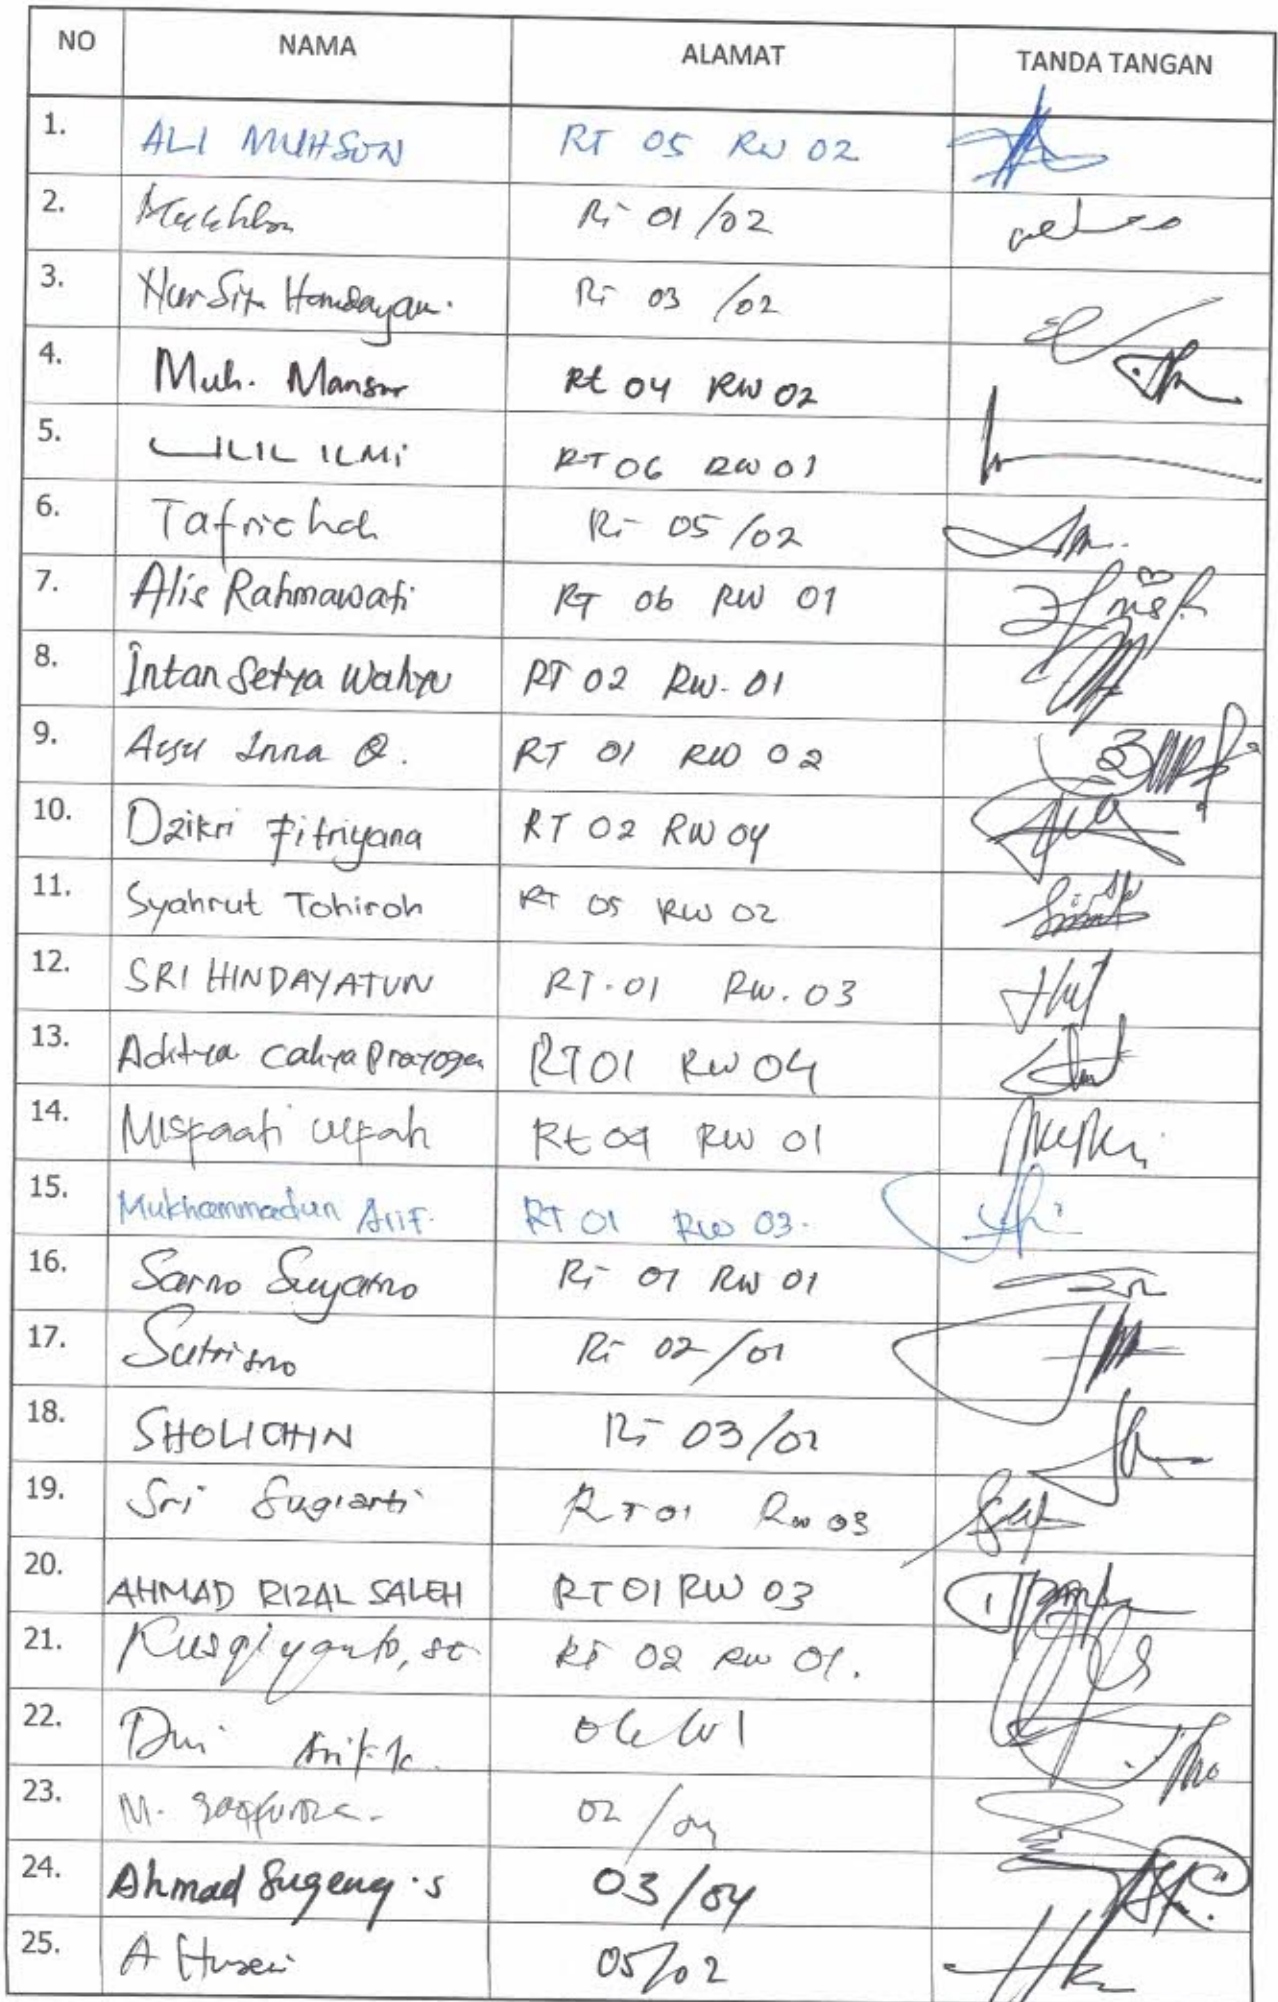 NO NAMA ALAMAT TANDA TANGAN
1. ALI MUHSUN RT 05 RW 02
2. Mukhlon Rt 01/02
3. Nur Siti Handayani. Rt 03 /02
4. Muh. Mansur Rt 04 RW 02
5. LILIL ILMI RT 06 RW 01
6. Tafrichah Rt 05/02
7. Alis Rahmawati RT 06 RW 01
8. Intan Setya Wahyu RT 02 RW. 01
9. Ayu Inna Q. RT 01 RW 02
10. Dzikri Fitriyana RT 02 RW 04
11. Syahrut Tohiroh RT 05 RW 02
12. SRI HINDAYATUN RT.01 RW. 03
13. Aditya Cahya Prayoga RT01 RW 04
14. Misfaati ulfah Rt 04 RW 01
15. Mukhammadun Arif. RT 01 RW 03.
16. Sarno Suyatno Rt 01 RW 01
17. Sutrisno Rt 02/01
18. SHOLICHIN Rt 03/01
19. Sri Sugiarti RT 01 Rw 03
20. AHMAD RIZAL SALEH RT 01 RW 03
21. Rt 02 RW 01.
22. Dwi
23. M. 02/04
24. Ahmad Sugeng.s 03/04
25. A Husein 05/02